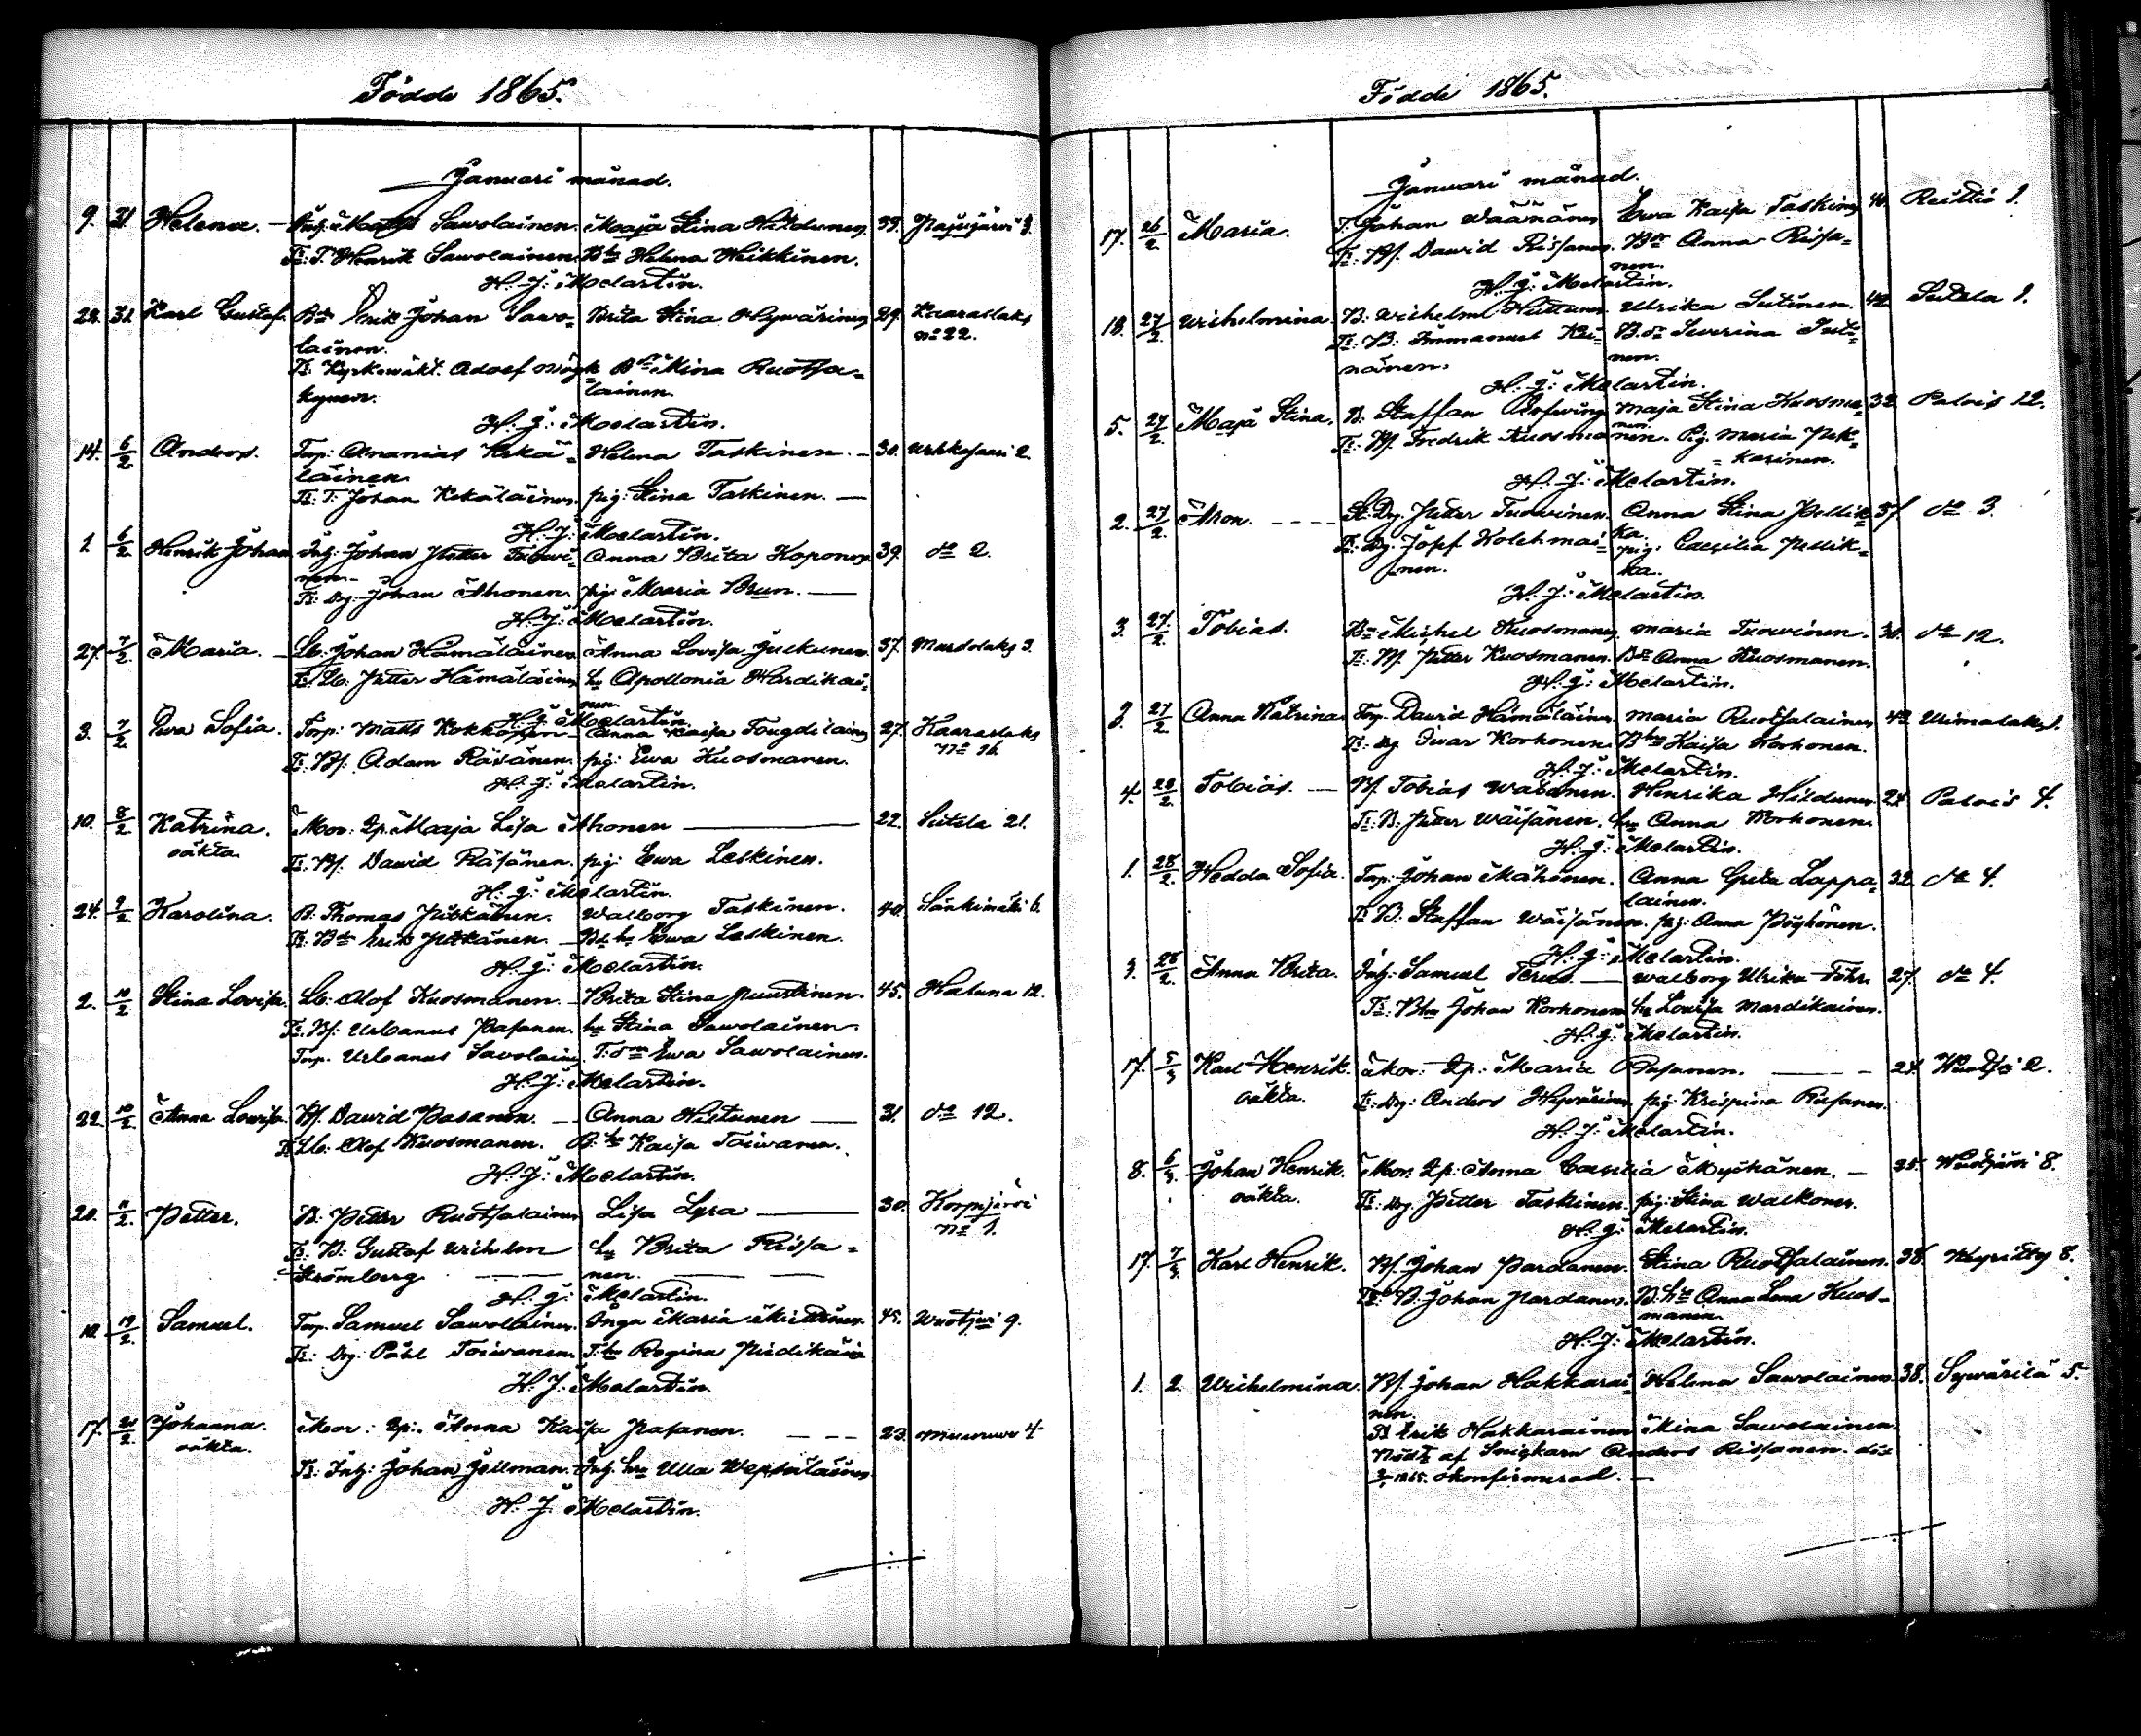 Födde 1865.
Januari månad.
9. 31 Helena. Inh: Matts Sawolainen. Maaja Stina Hildunen. 39. Pajujärvi 3.
Ts: T. Henrik Sawolainen. Helena Heikkinen.
H. J: Melartin.
24. 31 Karl Gustaf. Bds Erik Johan Sawo- Brita Stina Hywärinen 29. Kaaraslaks
lainen. no 22.
Ts: Kyrkowäkt. Adolf Niog Mina Ruotsa-
kynen. lainen.
H. J: Melartin.
14. 6/2 Anders. Torp: Ananias Kekä- Helena Taskinen. 30.
läinen
Ts: T: Johan Kekäläinen. pig: Stina Taskinen.
H. J: Melartin.
1 6/2 Henrik Johan Inh: Johan Petter Tuowi- Anna Brita Koponen. 39. do 2.
nen.
Ts: Dg: Johan Ahonen. pig: Maria Brun.
H. J: Melartin.
27. 7/2 Maria. Lb. Johan Hämäläinen Anna Lovisa Julkunen. 37. Murtolaks 3.
Ts: Lb: Petter Hämäläinen hu Apollonia Hardikai-
nen.
H. J: Melartin.
3. 7/2 Ewa Sofia. Torp: Matts Kokkonen Anna Kaisa Fougdilainen 27. Kaaraslaks
No 16
Ts: Bf: Adam Räsänen. pig: Ewa Kuosmanen.
H. J: Melartin.
10. 8/2 Katrina. Mor: Lp. Maaja Lisa Ahonen 22. Sutela 21.
oäkta.
Ts: Bf: Dawid Räsänen. pig: Ewa Leskinen.
H. J: Melartin.
24. 9/2 Karolina. B. Thomas Pitkänen. Walborg Taskinen. 40. Sänkimäki 6.
Ts: Bds Erik Pitkänen. Ewa Leskinen.
H. J: Melartin.
2. 10/2 Stina Lovisa. Lb: Olof Kuosmanen. Brita Stina Puustinen. 45. Haluna 12.
Ts. Bf: Urbanus Pasanen. hu Stina Sawolainen.
Torp. Urbanus Savolainen. Ewa Sawolainen.
H. J: Melartin.
22. 10/2 Anna Lovisa. Bf. Dawid Pasanen. Anna Hiltunen 31. do 12.
Ts: Lb: Olof Kuosmanen. B: hu Kaisa Toiwanen.
H. J: Melartin.
20. 11/2 Petter. B: Petter Ruotsalainen Lisa Lyra 30. Korpijärvi
No 1.
Ts. B: Gustaf Wilhelm hu Brita Rissa-
Strömberg nen.
H. J: Melartin.
10. 19/2 Samuel. Torp. Samuel Sawolainen. Inga Maria Miettinen. 45. Wuotjerwi 9.
Ts: Dg. Påhl Toiwanen. T: hu Regina
H. J: Melartin.
17. 20/2 Johanna. Mor: Lp: Anna Kaisa Pasanen. 23. 4
oäkta.
Ts: Inh: Johan Jellman. Inh: hu Ulla Wepsäläinen
H. J: Melartin.
Födde 1865.
Januari månad.
17. 26/2 Maria. T. Johan Wäänänen Ewa Kaisa Taskinen 40. Reittiö 1.
Ts: Bf. Dawid Rissanen. Anna Rissa-
nen.
H. J: Melartin.
18. 27/2 Wilhelmina. B: Wilhelm Huttunen. Ulrika Sutinen. 42. Sutela 1.
Ts: B: Immanuel Kei- Severina Suti-
nänen. nen.
H. J: Melartin.
5. 27/2 Maja Stina. B. Staffan Maja Stina Kuosma- 32 Palois 12.
nen.
Ts: Bf. Fredrik Kuosmanen. Pig Maria Pek-
karinen.
H. J: Melartin.
2. 27/2 Aron. St. Dg. Petter Tuowinen. Anna Stina Pellik- 37 do 3.
ka.
Ts: Dg: Josef Kolehmai- pig: Caesilia Pellik-
nen. ka.
H. J: Melartin.
3. 27/2 Tobias. Michel Kuosmanen. Maria Tuowinen. 30. do 12.
Ts: Bf. Petter Kuosmanen. Anna Kuosmanen.
H. J: Melartin.
3. 27/2 Anna Katrina Torp. Dawid Hämäläinen. Maria Ruotsalainen 42 Urimolaks 1.
Ts: Dg Iwar Korhonen. Kaisa Korhonen.
H. J: Melartin.
4. 28/2 Tobias. Bf. Tobias Wäisänen. Henrika Hildunen 24 Palois 4.
Ts: B: Petter Wäisänen. hu Anna Korhonen.
H. J: Melartin.
1. 28/2 Hedda Sofia. Torp: Johan Mähönen. Anna Greta Lappa- 32. do 4.
lainen.
Ts: B: Staffan Wäisänen. pig: Anna Pöyhönen.
H. J: Melartin.
3. 28/2 Anna Brita. Inh: Samuel Walborg Ulrika 27. do 4.
Ts: Johan Korhonen hu Lovisa Mardikainen.
H. J: Melartin.
17. 5/3 Karl Henrik. Mor: Lp: Maria 24 2.
oäkta. Ts: Dg: Anders Hywärinen pig: Krispina
H. J: Melartin.
8. 6/3 Johan Henrik. Mor: Lp: Anna Caesilia Mychänen. 25. Wuotjärvi 8.
oäkta. Ts: Dg. Petter Taskinen. pig: Stina Walkonen.
H. J: Melartin.
17. 7/3 Karl Henrik. Bf. Johan Pardanen. Stina Ruotsalainen. 38. 8.
Ts: B: Johan Pardanen. B: hu Anna Lena Kuos-
manen.
H. J: Melartin.
1. 2. Wilhelmina. Bf. Johan Hakkarai- Helena Sawolainen. 38. Sywärilä 5.
nen.
Erik Hakkarainen Mina Sawolainen.
Nöddt af Snickarn Anders Rissanen. död
1865. okonfirmerad.